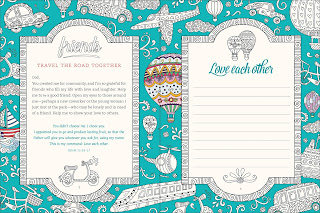 friends
TRAVEL THE ROAD TOGETHER
God,
You created me for community, and I'm so grateful
for friends who fill my life with love and laughter. Help
me to be a good friend. Open my eyes to those around
me—perhaps a new coworker or the young woman I
just met at the park—who may be lonely and in need of
a friend. Help me to show your love to others.
You didn't choose me. I chose you.
I appointed you to go and produce lasting fruit, so that the
Father will give you whatever you ask for, using my name.
This is my command: Love each other.
JOHN 15:16-17
Love each other